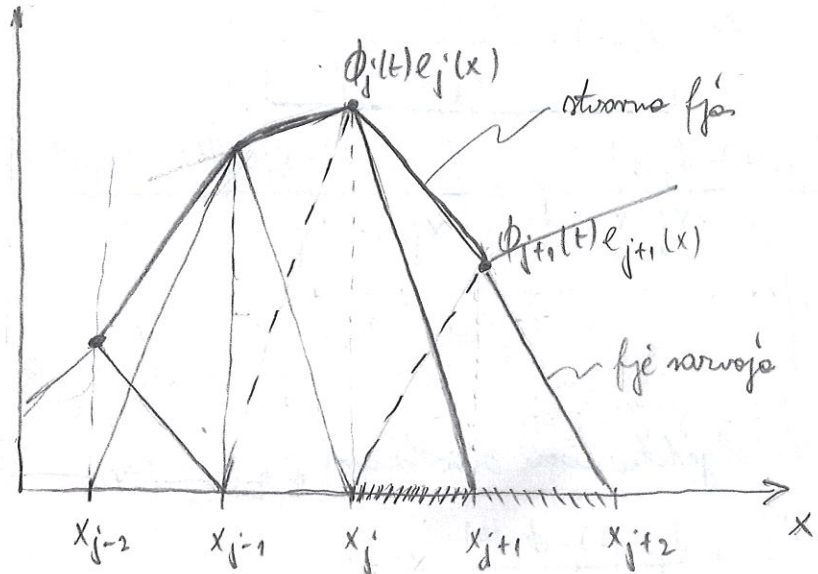 ϕ_j(t)e_j(x)
stvarna fja
ϕ_{j+1}(t)e_{j+1}(x)
fje razvoja
x_{j-2} x_{j-1} x_j x_{j+1} x_{j+2}
x